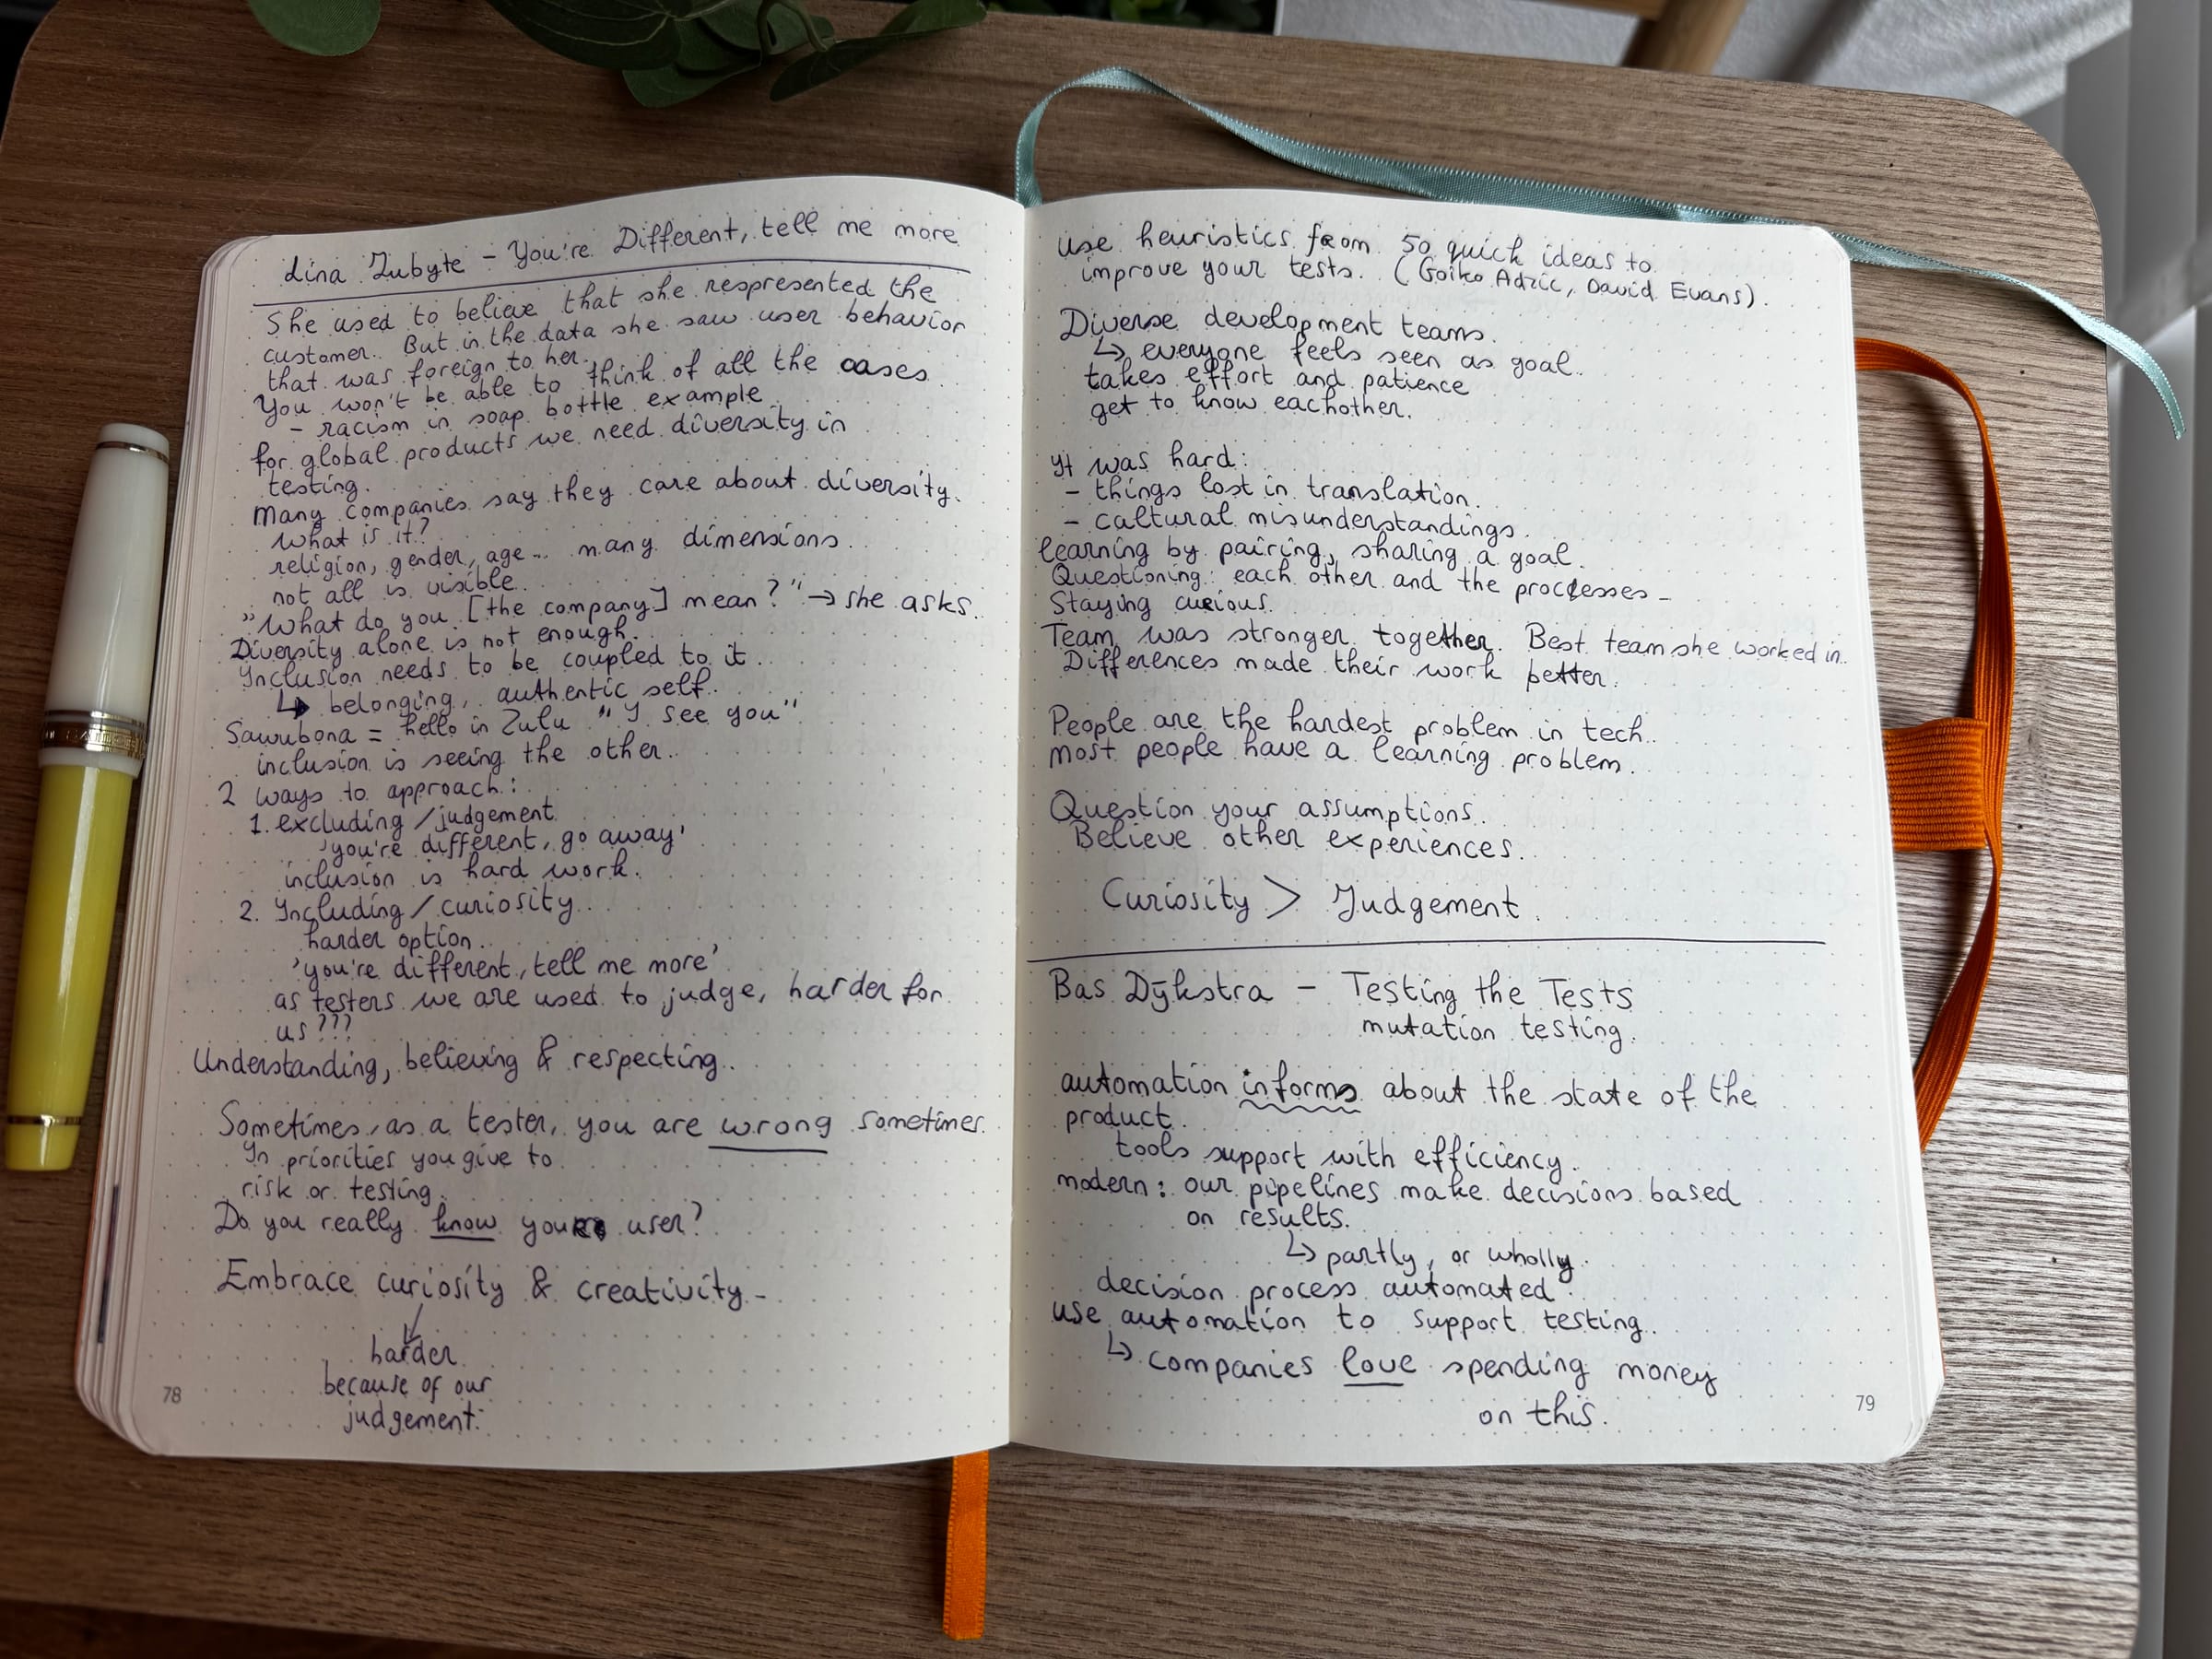 Lina Zubyte - You're Different, tell me more
She used to believe that she respresented the
customer. But in the data she saw user behavior
that was foreign to her.
You won't be able to think of all the cases
- racism in soap bottle example
for global products we need diversity in
testing.
Many companies say they care about diversity.
What is it?
religion, gender, age... many dimensions.
not all is visible.
"What do you [the company] mean?" → she asks.
Diversity alone is not enough.
Inclusion needs to be coupled to it.
↳ belonging, authentic self.
Sawubona = hello in Zulu "I see you"
inclusion is seeing the other.
2 ways to approach:
1. excluding / judgement
'you're different, go away'
inclusion is hard work.
2. Including / curiosity
harder option.
'you're different, tell me more'
as testers we are used to judge, harder for
us???
Understanding, believing & respecting.
Sometimes, as a tester, you are wrong sometimes.
In priorities you give to
risk or testing.
Do you really know your user?
Embrace curiosity & creativity -
harder
because of our
judgement.
78
use heuristics from 50 quick ideas to
improve your tests. (Gojko Adzic, David Evans).
Diverse development teams.
↳ everyone feels seen as goal.
takes effort and patience
get to know eachother.
It was hard:
- things lost in translation.
- cultural misunderstandings.
learning by pairing, sharing a goal.
Questioning: each other and the processes -
Staying curious.
Team was stronger together. Best team she worked in.
Differences made their work better.
People are the hardest problem in tech.
most people have a learning problem.
Question your assumptions.
Believe other experiences.
Curiosity > Judgement.
Bas Dijkstra - Testing the Tests
mutation testing.
automation informs about the state of the
product.
tools support with efficiency.
modern: our pipelines make decisions based
on results.
↳ partly, or wholly.
decision process automated.
use automation to support testing.
↳ companies love spending money
on this.
79